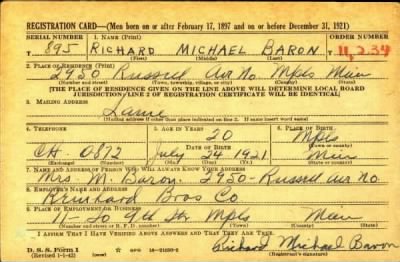 REGISTRATION CARD—(Men born on or after February 17, 1897 and on or before December 31, 1921)
SERIAL NUMBER 1. NAME (Print) ORDER NUMBER
T 895 RICHARD MICHAEL BARON T 11,234
(First) (Middle) (Last)
2. PLACE OF RESIDENCE (Print)
2950 Russell Av No. Mpls Minn
(Number and street) (Town, township, village, or city) (County) (State)
[THE PLACE OF RESIDENCE GIVEN ON THE LINE ABOVE WILL DETERMINE LOCAL BOARD
JURISDICTION; LINE 2 OF REGISTRATION CERTIFICATE WILL BE IDENTICAL]
3. MAILING ADDRESS
Same
[Mailing address if other than place indicated on line 2. If same insert word same]
4. TELEPHONE 5. AGE IN YEARS 6. PLACE OF BIRTH
20 Mpls
DATE OF BIRTH (Town or county)
CH. 0872 July 24 1921 Minn
(Exchange) (Number) (Mo.) (Day) (Yr.) (State or country)
7. NAME AND ADDRESS OF PERSON WHO WILL ALWAYS KNOW YOUR ADDRESS
Mrs. M. Baron. 2950-Russell av no
8. EMPLOYER'S NAME AND ADDRESS
Bros Co
9. PLACE OF EMPLOYMENT OR BUSINESS
11-20 9th St Mpls Minn
(Number and street or R. F. D. number) (Town) (County) (State)
I AFFIRM THAT I HAVE VERIFIED ABOVE ANSWERS AND THAT THEY ARE TRUE.
D. S. S. Form 1 GPO 16—21630-2
(Revised 1-1-42) Richard Michael Baron